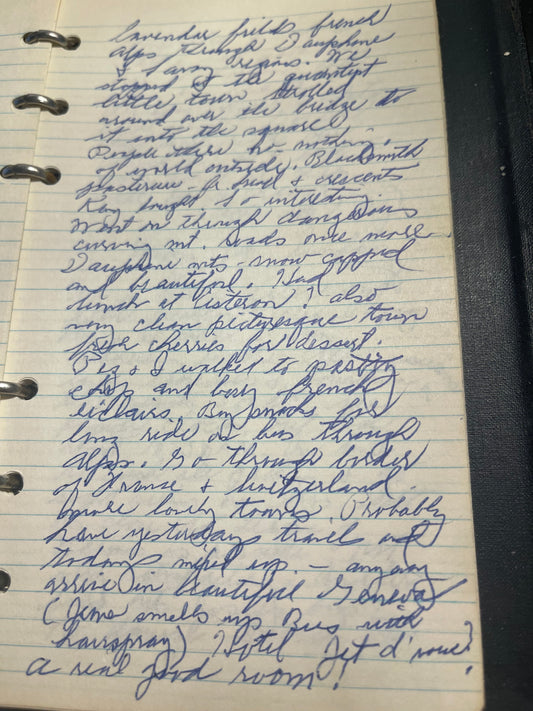 lavendar fields french
alps through Dauphone
& Savoy regions. We
stopped at the quaintest
little town strolled
around over the bridge to
it into the square
People there know nothing
of world outside. Blacksmith
- bread & crescents
Kay bought so interesting.
Went on through dangerous
curving mt. roads once more
Dauphone mts - snow capped
and beautiful. Had
lunch at Cisteron? also
very clean picturesque town
fresh cherries for dessert.
Peg & I walked to pastry
shop and busy french
eclairs. Buy snacks for
long ride on bus through
alps. Go through border
of France & Switzerland.
more lovely towns. Probably
have yesterdays travel and
todays mixed up. - anyway
arrive in beautiful Geneva
(Jema smells up Bus with
hairspray) Hotel Jet d'
a real good room!